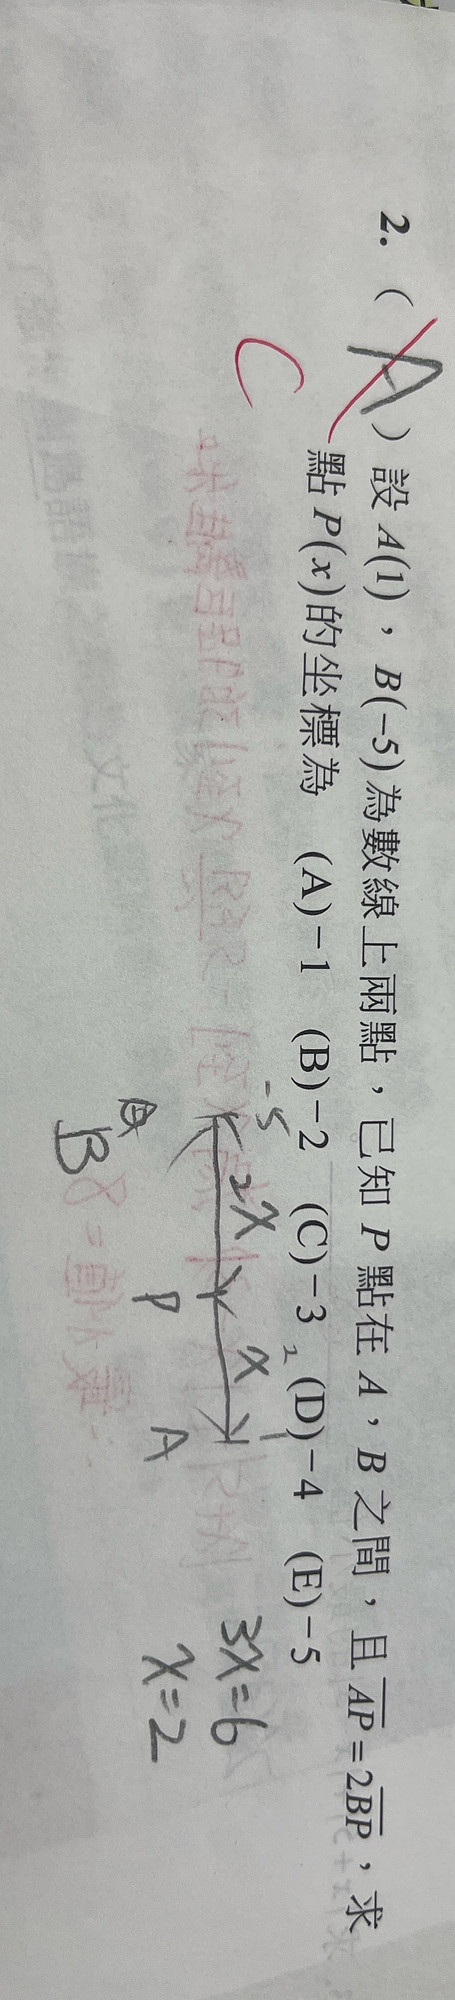 2. ( A ) 設 A(1),B(-5)為數線上兩點,已知 P 點在 A,B 之間,且 AP=2BP,求
點 P(x)的坐標為 (A)-1 (B)-2 (C)-3 (D)-4 (E)-5
C
-5 2x x 1
B P A
B
3x=6
x=2
2